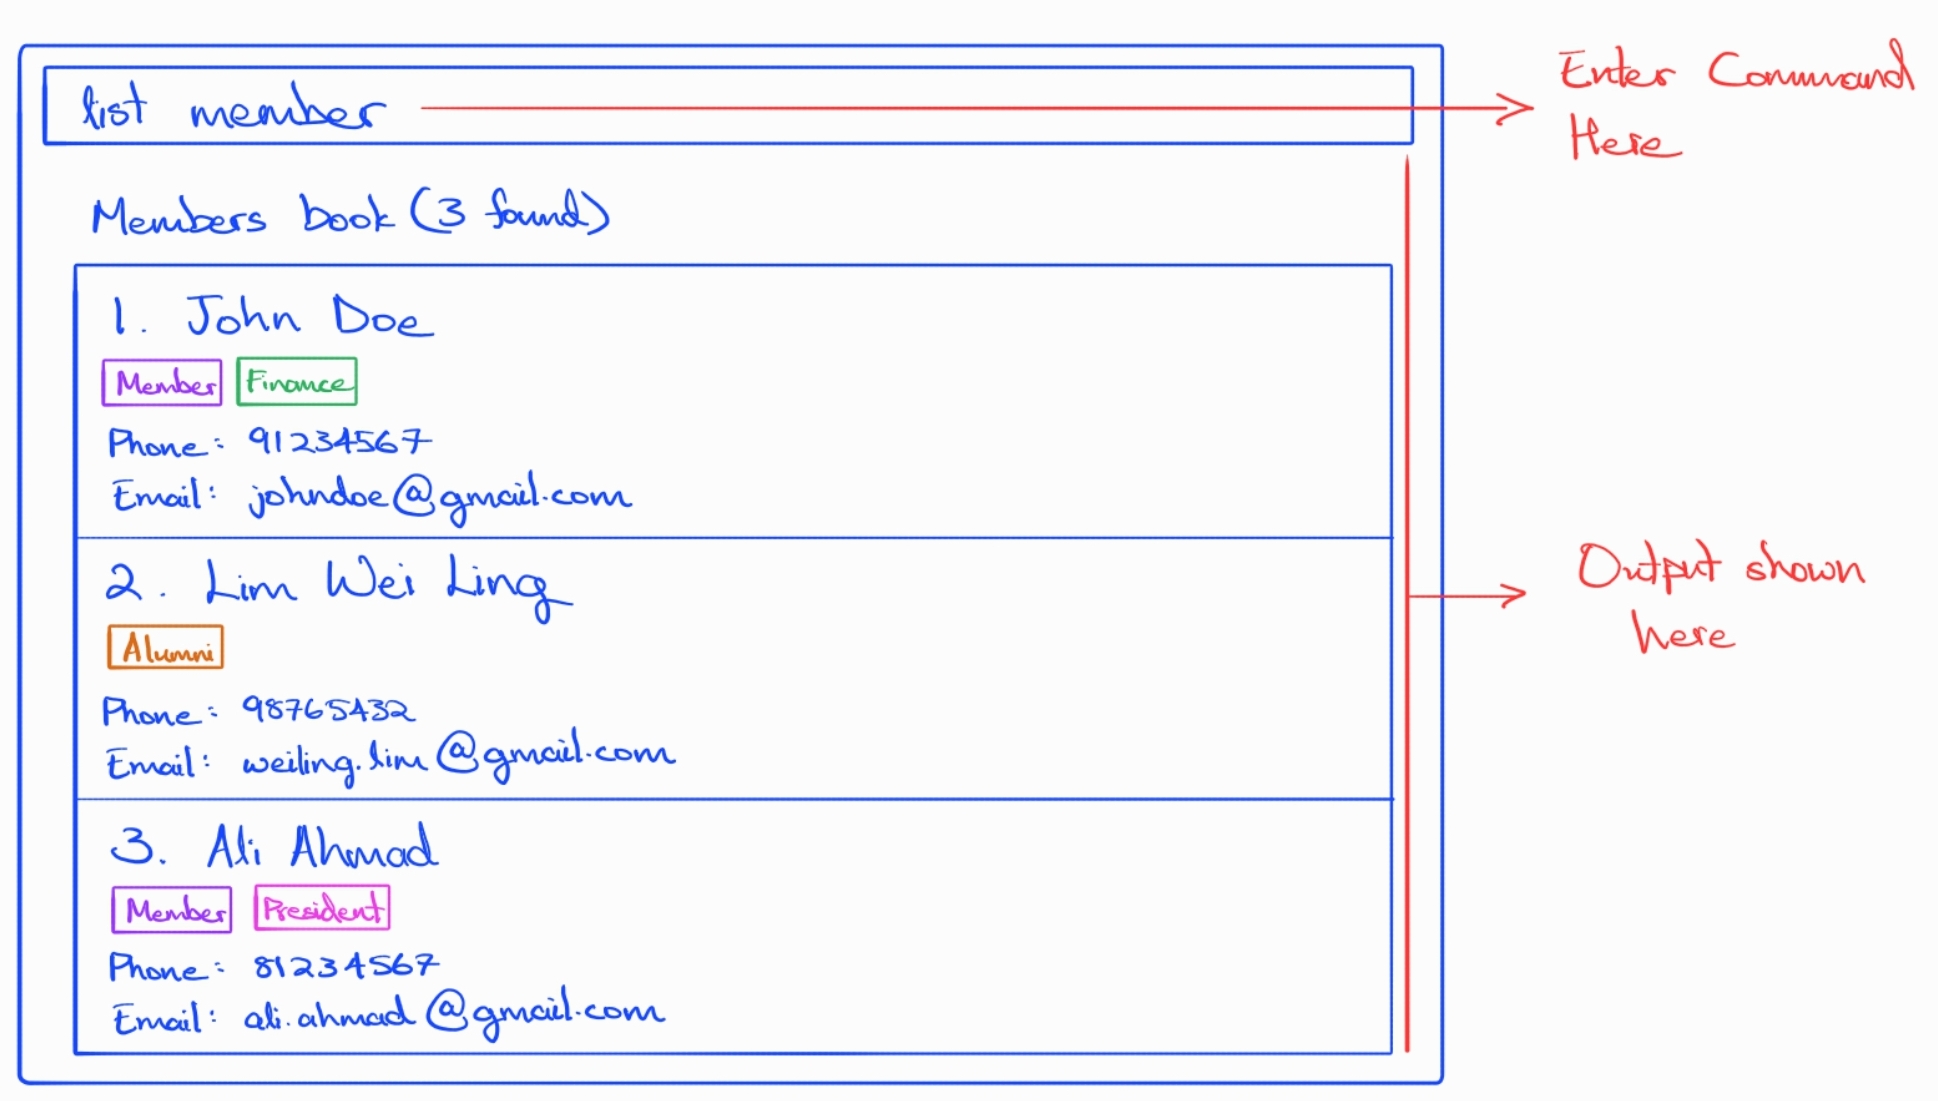 list member
Enter Command
Here
Members book (3 found)
1. John Doe
Member Finance
Phone: 91234567
Email: johndoe@gmail.com
2. Lim Wei Ling
Alumni
Phone: 98765432
Email: weiling.lim@gmail.com
Output shown
here
3. Ali Ahmad
Member President
Phone: 81234567
Email: ali.ahmad@gmail.com